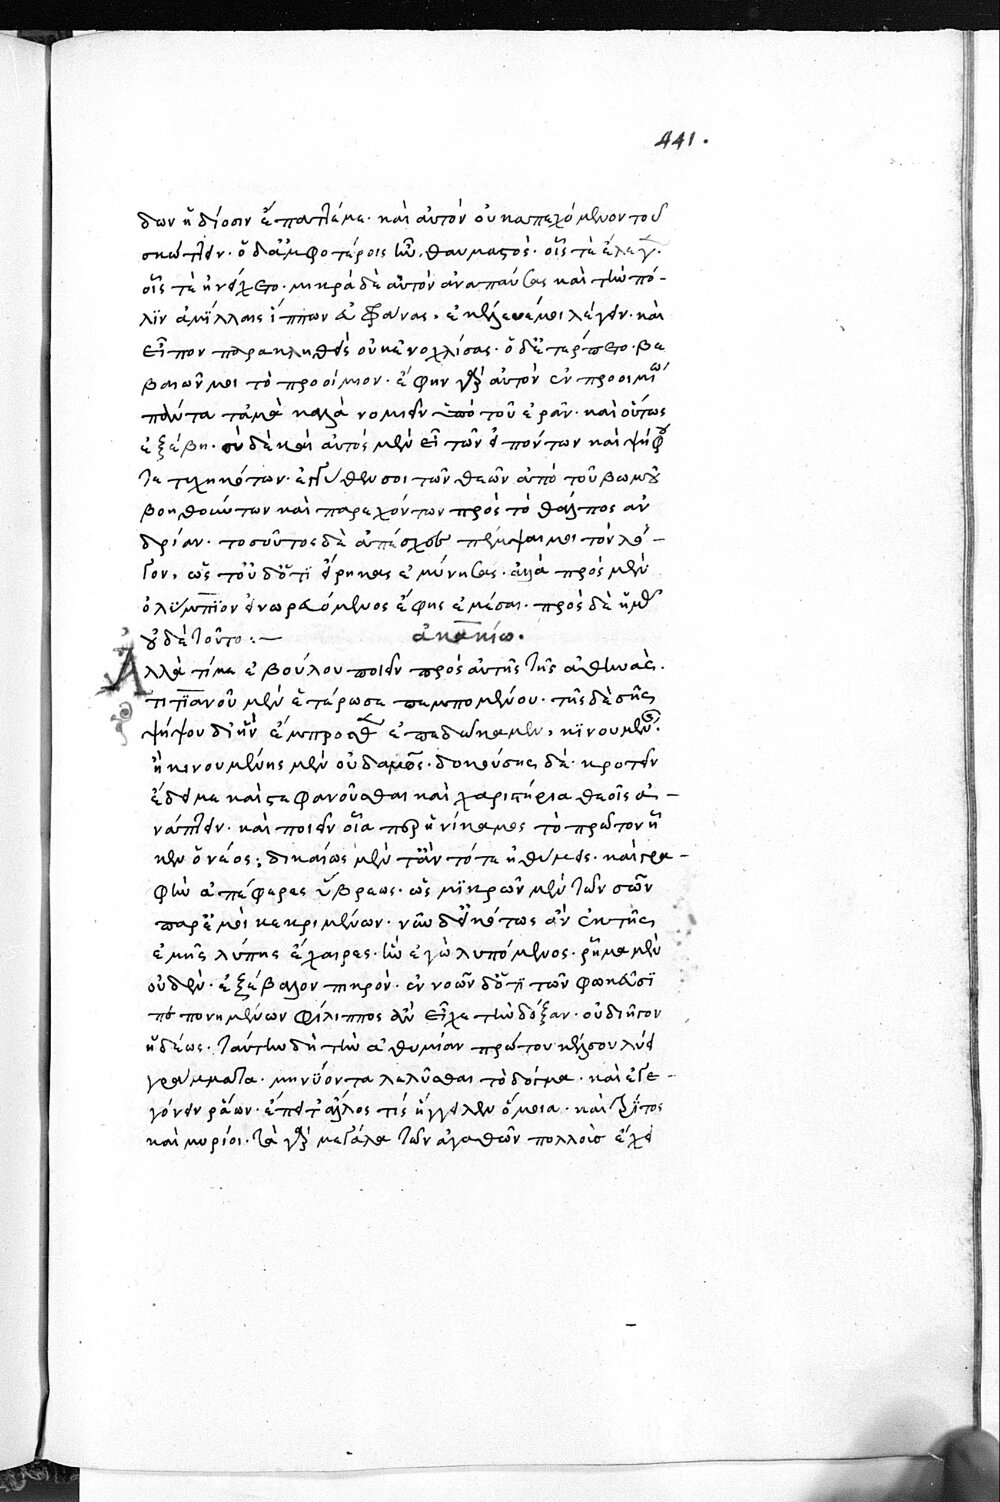 441.
δων ἢ δίοσιν ἔπαττέ με. καὶ αὐτὸν οὐκ ἀπεχόμενον τοῦ
σκώπτειν. ὁ δ' ἀμφοτέροις ἦν θαυμαστός. οἷς τε ἔλεγεν.
οἷς τε ἠνείχετο. μικρὰ δὲ αὑτὸν ἀναπαύσας καὶ τὴν πό-
λϊν ἁμίλλαις ἵππων εὐφράνας, ἐκέλευέ μοι λέγειν. καὶ
εἶπον παρακληθεὶς οὐκ ἐνοχλήσας. ὁ δ' ἐτέρπετο. βε
βαιῶν μοι τὸ προοίμιον. ἔφην γὰρ αὐτὸν ἐν προοιμίῳ
πάντα τἀμὰ καλὰ νομιεῖν ὑπὸ τοῦ ἐρᾶν. καὶ οὕτως
ἐξέβη. σὺ δὲ καὶ αὐτὸς μὲν εἶ τῶν εἰπόντων καὶ ψήφου
τετυχηκότων. ἐπῆλθεν σοι τῶν θεῶν ἀπὸ τοῦ βωμοῦ
βοηθούντων καὶ παρεχόντων πρὸς τὸ θάλπος ἀν
δρίαν. τοσοῦτος δὲ ἀπέσχου πέμψαι μοι τὸν λό-
γον, ὡς τοῦδ' ὅτϊ εἴρηκας ἐμήνυσας. ἀλλὰ πρὸς μὲν
ὀλύμπϊον ἐνωρᾳόμενος ἔφης ἐμέσαι. πρὸς δὲ ἡμᾶς
οὐδὲ τοῦτο:— ἀκακίῳ.
Ἀλλὰ τί με ἐβούλου ποιεῖν πρὸς αὐτῆς τῆς ἀθηνᾶς.
τιτϊανοῦ μὲν ἑτέρωσε πεμπομένου. τῆς δὲ σῆς
ψήφου δι' ἣν ἔμπροσθεν ἐπεδώκαμεν, κϊνουμένης.
ἢ κινουμένης μὲν οὐδαμῶς. δοκούσης δέ. κροτεῖν
ἔδει με καὶ στεφανοῦσθαι καὶ χαριστήρια θεοῖς ἀ-
νάπτειν. καὶ ποιεῖν οἷα περ ἡνίκα μοι τὸ πρῶτον ἧ
κεν ὁ νέος; δικαίως μὲν τἂν τότε ἠθύμεις. καὶ γρα-
φὴν ἀπέφερες ὕβρεως. ὡς μϊκρῶν μὲν τῶν σῶν
παρ' ἐμοὶ κεκριμένων. νῦν δ' εἰκότως ἂν ἐκ τῆς
ἐμῆς λύπης ἔχαιρες. ἣν ἐγὼ λυπόμενος. ῥῆμα μὲν
οὐδὲν. ἐξέβαλον πικρὸν. ἐννοῶν δ' ὅτϊ τῶν φωκεῦσϊ
πεπονημένων φίλιππος ἂν εἶχε τὴν δόξαν. οὐ διῆγον
ἡδέως. ταύτην δὴ τὴν ἀθυμίαν πρώτου κέλσου λύει
γράμματα. μηνύοντα λελῦσθαι τὸ δόγμα. καὶ ἐγε-
γόνειν ῥᾴων. ἔπειτ' ἄλλος τίς ἤγγειλεν ὅμοια. καὶ τρίτος
καὶ μυρίοι. τὰ γὰρ μεγάλα τῶν ἀγαθῶν πολλοὺς ἔχει